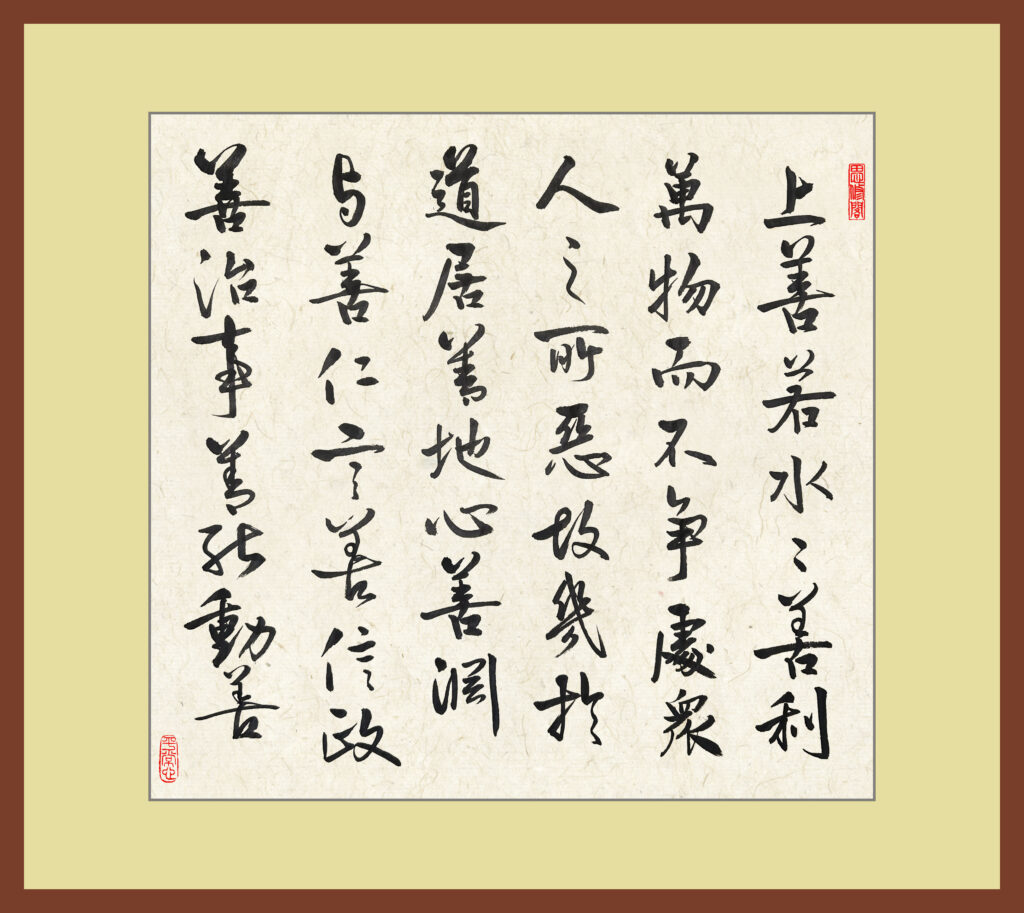 上善若水〻善利
萬物而不争處衆
人之所惡故幾於
道居善地心善淵
与善仁言善信政
善治事善能動善
平常心